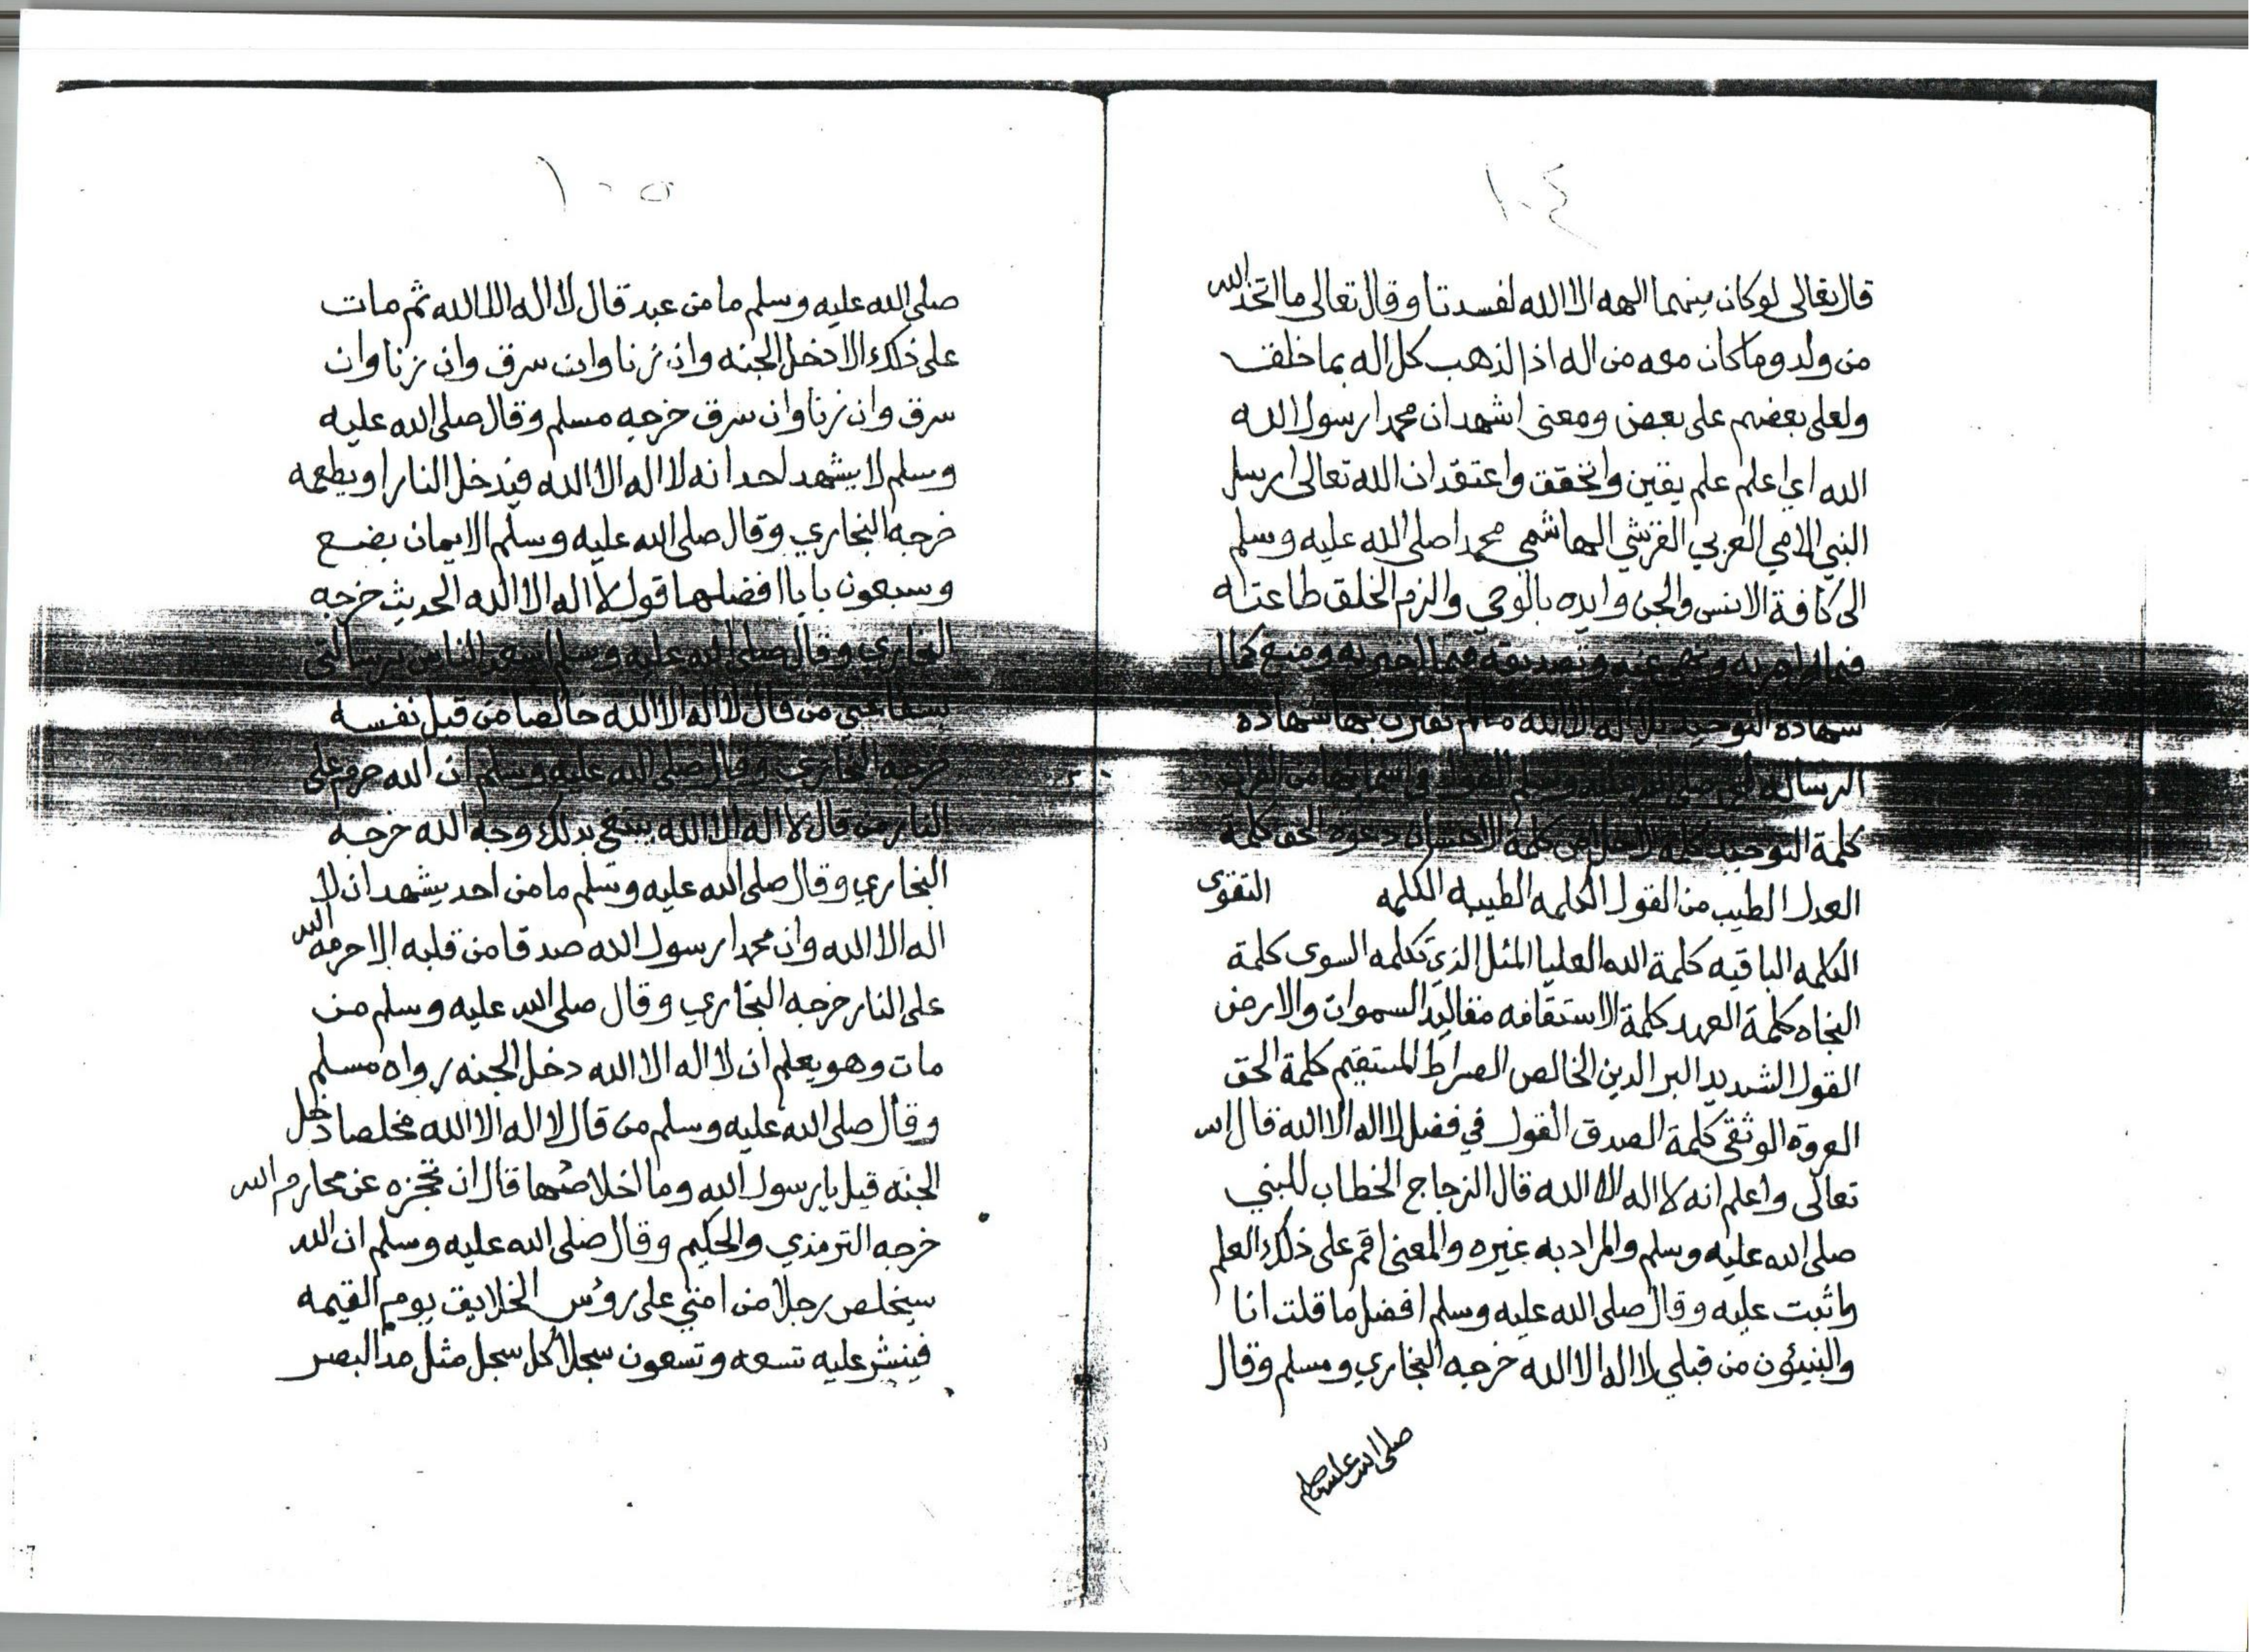 ١٠٤
قال تعالى لو كان فيهما الهه الا الله لفسدتا وقال تعالى ما اتخذ الله
من ولد وما كان معه من اله اذا لذهب كل اله بما خلق
ولعلى بعضهم على بعض ومعنى اشهد ان محمدا رسول الله
الله اي اعلم علم يقين واتحقق واعتقد ان الله تعالى ارسل
النبي الامي العربي القرشي الهاشمي محمدا صلى الله عليه وسلم
الى كافة الانس والجن وايده بالوحي والزم الخلق طاعته
فيما امر به ونهى عنه وتصديقه فيما اخبر به ومنع كمال
شهاده التوحيد بلا اله الا الله مالم تقترن بها شهاده
الرساله صلى الله عليه وسلم القول في اسمائها من القران
كلمة التوحيد كلمة الاخلاص كلمة الاحسان دعوة الحق كلمة
العدل الطيب من القول الكلمه الطيبه الكلمه التقوى
الكلمه الباقيه كلمة الله العليا المثل الذي تكلمه السوى كلمة
النجاه كلمة العهد كلمة الاستقامه مقاليد السموات والارض
القول الشديد البر الدين الخالص الصراط المستقيم كلمة الحق
العروة الوثقى كلمة الصدق القول في فضل لا اله الا الله قال الله
تعالى واعلم انه لا اله الا الله قال الزجاج الخطاب للنبي
صلى الله عليه وسلم والمراد به غيره والمعنى اقم على ذلك العلم
واثبت عليه وقال صلى الله عليه وسلم افضل ما قلت انا
والنبيئون من قبلي لا اله الا الله خرجه البخاري ومسلم وقال
صلى الله عليه وسلم
١٠٥
صلى الله عليه وسلم ما من عبد قال لا اله الا الله ثم مات
على ذلك الا دخل الجنه وان زنا وان سرق وان زنا وان
سرق وان زنا وان سرق خرجه مسلم وقال صلى الله عليه
وسلم لا يشهد احد انه لا اله الا الله فيدخل النار او يطعمه
خرجه البخاري وقال صلى الله عليه وسلم الايمان بضع
وسبعون بابا افضلها قول لا اله الا الله الحديث خرجه
البخاري وقال صلى الله عليه وسلم اسعد الناس
بشفاعتي من قال لا اله الا الله خالصا من قبل نفسه
خرجه البخاري وقال صلى الله عليه وسلم ان الله حرم على
النار من قال لا اله الا الله يبتغي بذلك وجه الله خرجه
البخاري وقال صلى الله عليه وسلم ما من احد يشهد ان لا
اله الا الله وان محمدا رسول الله صدقا من قلبه الا حرمه الله
على النار خرجه البخاري وقال صلى الله عليه وسلم من
مات وهو يعلم ان لا اله الا الله دخل الجنه رواه مسلم
وقال صلى الله عليه وسلم من قال لا اله الا الله مخلصا دخل
الجنه قيل يا رسول الله وما اخلاصها قال ان تحجزه عن محارم الله
خرجه الترمذي والحكيم وقال صلى الله عليه وسلم ان الله
سيخلص رجلا من امتي على رؤس الخلايق يوم القيمه
فينشر عليه تسعه وتسعون سجلا كل سجل مثل مد البصر